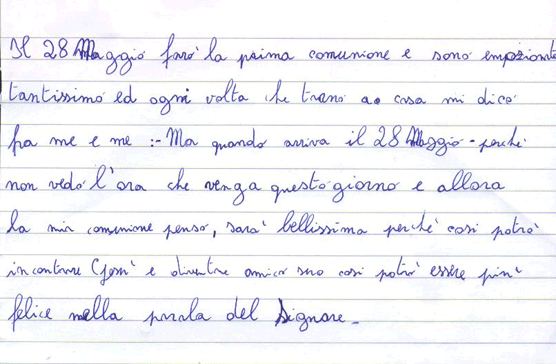 Il 28 Maggio farò la prima comunione e sono empzionato
tantissimo ed ogni volta che trano a casa mi dico
fra me e me :- Ma quando arriva il 28 Maggio - perché
non vedo l'ora che venga questo giorno e allora
la mia comunione penso, sarà bellissima perché così potrò
incontrare Gesù e diventre amico suo così potrò essere più
felice nella parola del Signore -